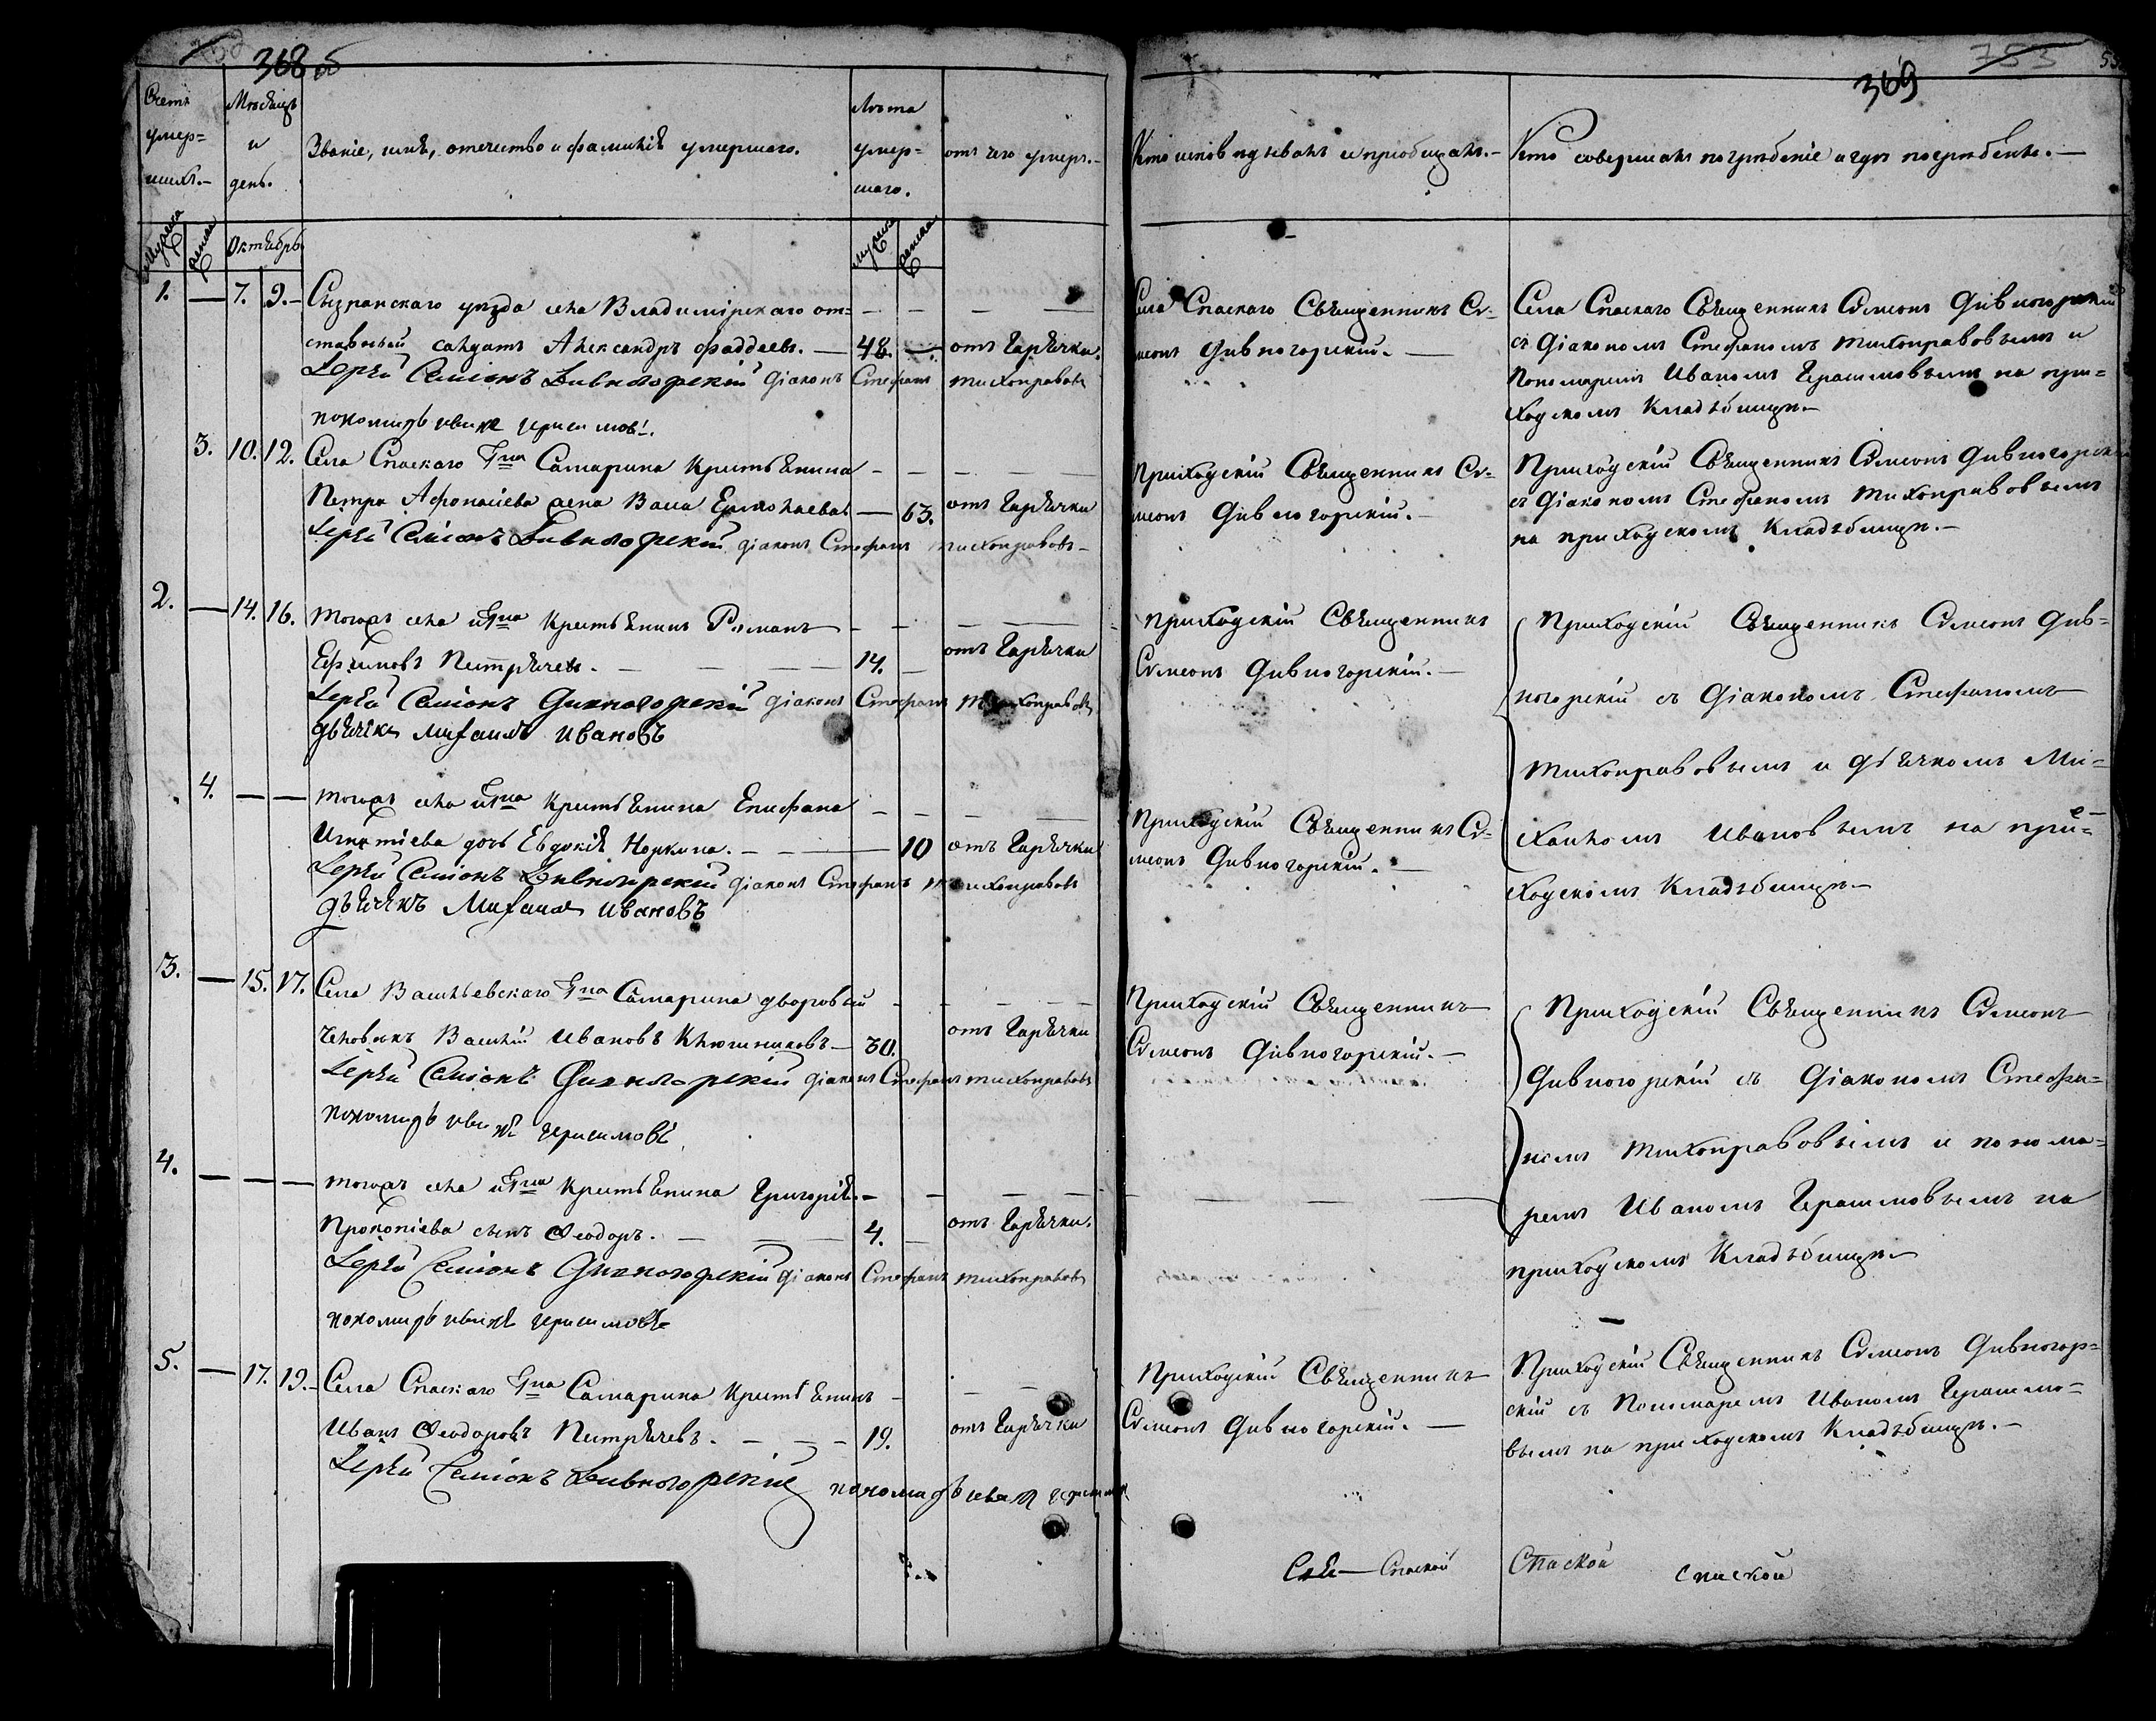 368 об
369
753
Счетъ умер=шихъ.—
Мѣсяцъ и день.
Званіе, имя, отечество и фамилія умершаго.
Лѣта умер=шаго.
отъ чего умеръ.—
Кто исповѣдывалъ и пріобщалъ.—
Кто совершалъ погрѣбеніе и гдѣ погребѣнъ.—
Мужска
женска
Октября
мужска
женска
1. — 7. 9.— Сызранскаго уѣзда села Владимірскаго от=
ставный салдатъ Александръ Фаддеевъ. — 48. — отъ Гарячки.
Іерей Симіонъ Дивногорскій діаконъ Стефанъ Тихонравовъ
пономарь Иванъ Герасимовъ.
Села Спаскаго Священникъ Си=
меонъ Дивногорскій.—
Села Спаскаго Священникъ Симеонъ Дивногорскій
съ Діакономъ Стефаномъ Тихонравовымъ и
Пономаремъ Иваномъ Герасимовымъ на при=
ходскомъ Кладбищѣ.—
3. 10. 12. Села Спаскаго Гна Самарина Крестьянина
Петра Афонасіева жена Васа Ермолаева — 63. отъ Гарячки
Іерей Симіонъ Дивногорскій діаконъ Стефанъ Тихонравовъ—
Приходскій Священникъ Си=
меонъ Дивногорскій.—
Приходскій Священникъ Симеонъ Дивногорскій
съ Діакономъ Стефаномъ Тихонравовымъ
на приходскомъ Кладбищѣ.—
2. — 14. 16. Тогожъ села и Гна Крестьянинъ Романъ
Ефимовъ Петрячевъ.— 14. — отъ Гарячки
Іерей Симіонъ Дивногорскій діаконъ Стефанъ Тихонравовъ
дьячекъ Михаилъ Ивановъ
Приходскій Священникъ
Симеонъ Дивногорскій.—
Приходскій Священникъ Симеонъ Див=
ногорскій съ Діакономъ Стефаномъ
Тихонравовымъ и дьячкомъ Ми=
хаиломъ Ивановымъ на при=
ходскомъ Кладбищѣ—
4. — — Тогожъ села и Гна Крестьянина Епифана
Игнатіева дочь Евдокія Норкина.— 10 отъ Гарячки
Іерей Симіонъ Дивногорскій діаконъ Стефанъ Тихонравовъ
дьячекъ Михаилъ Ивановъ
Приходскій Священникъ Си=
меонъ Дивногорскій.—
3. — 15. 17. Села Васильевскаго Гна Самарина дворовый
человѣкъ Василій Ивановъ Ключниковъ— 30. отъ Гарячки
Іерей Симіонъ Дивногорскій діаконъ Стефанъ Тихонравовъ
пономарь Иванъ Герасимовъ
Приходскій Священникъ
Симеонъ Дивногорскій.—
Приходскій Священникъ Симеонъ
Дивногорскій съ Діакономъ Стефа=
номъ Тихонравовымъ и понома=
ремъ Иваномъ Герасимовымъ на
приходскомъ Кладбищѣ—
4. — — — Тогожъ села и Гна Крестьянина Григорія
Прокопіева сынъ Феодоръ.— 4. — отъ Гарячки.
Іерей Симіонъ Дивногорскій діаконъ Стефанъ Тихонравовъ
пономарь Иванъ Герасимовъ
5. — 17. 19.— Села Спаскаго Гна Самарина Крестьянинъ
Иванъ Феодоровъ Петрячевъ.— 19. отъ Гарячки
Іерей Симіонъ Дивногорскій пономарь Иванъ Герасимовъ
Приходскій Священникъ
Симеонъ Дивногорскій.—
Приходскій Священникъ Симеонъ Дивногор=
скій съ Пономаремъ Иваномъ Герасимо=
вымъ на приходскомъ Кладбищѣ.—
Спаской Спаской Спаской